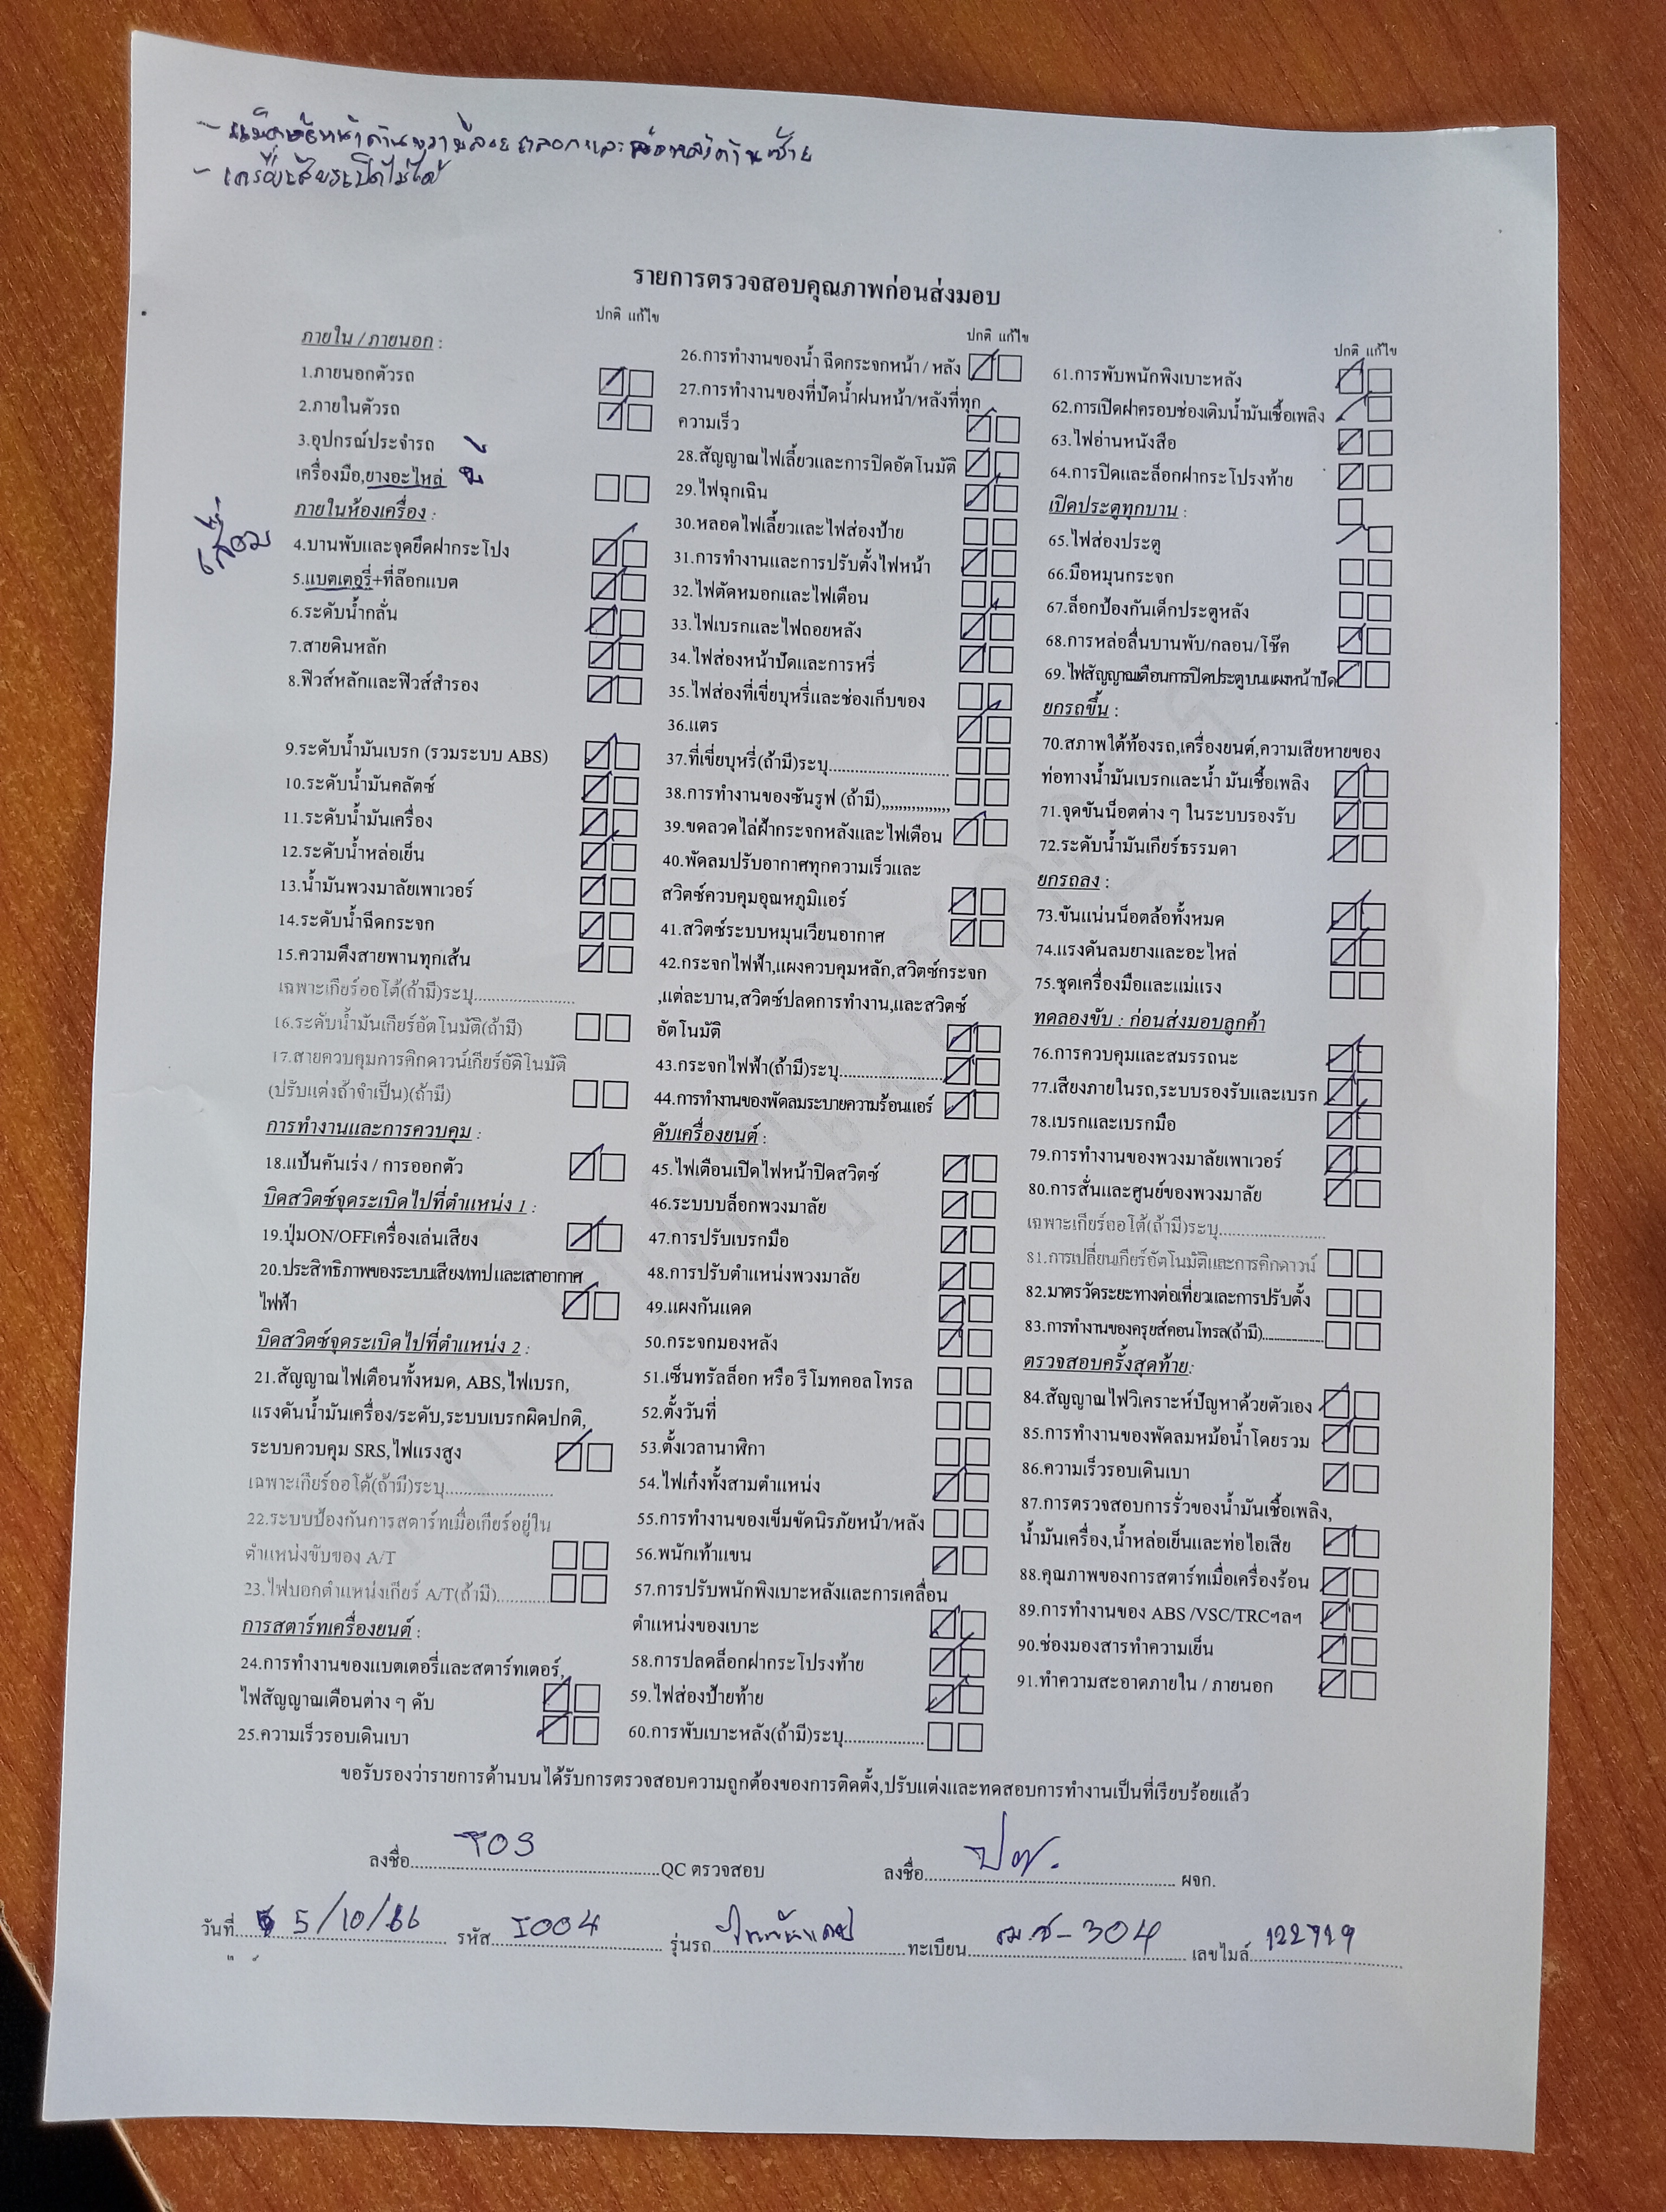 - เครื่องเสียงเปิดไม่ได้
รายการตรวจสอบคุณภาพก่อนส่งมอบ
ปกติ แก้ไข
ภายใน / ภายนอก :
1.ภายนอกตัวรถ
2.ภายในตัวรถ
3.อุปกรณ์ประจำรถ
เครื่องมือ,ยางอะไหล่ มี
ภายในห้องเครื่อง :
เสื่อม
4.บานพับและจุดยึดฝากระโปง
5.แบตเตอรี่+ที่ล๊อกแบต
6.ระดับน้ำกลั่น
7.สายดินหลัก
8.ฟิวส์หลักและฟิวส์สำรอง
9.ระดับน้ำมันเบรก (รวมระบบ ABS)
10.ระดับน้ำมันคลัตช์
11.ระดับน้ำมันเครื่อง
12.ระดับน้ำหล่อเย็น
13.น้ำมันพวงมาลัยเพาเวอร์
14.ระดับน้ำฉีดกระจก
15.ความตึงสายพานทุกเส้น
เฉพาะเกียร์ออโต้(ถ้ามี)ระบุ....................
16.ระดับน้ำมันเกียร์อัตโนมัติ(ถ้ามี)
17.สายควบคุมการคิกดาวน์เกียร์อัติโนมัติ
(ปรับแต่งถ้าจำเป็น)(ถ้ามี)
การทำงานและการควบคุม :
18.แป้นคันเร่ง / การออกตัว
บิดสวิตซ์จุดระเบิดไปที่ตำแหน่ง 1 :
19.ปุ่มON/OFFเครื่องเล่นเสียง
20.ประสิทธิภาพของระบบเสียง/เทป และเสาอากาศ
ไฟฟ้า
บิดสวิตซ์จุดระเบิดไปที่ตำแหน่ง 2 :
21.สัญญาณไฟเตือนทั้งหมด, ABS,ไฟเบรก,
แรงดันน้ำมันเครื่อง/ระดับ,ระบบเบรกผิดปกติ,
ระบบควบคุม SRS,ไฟแรงสูง
เฉพาะเกียร์ออโต้(ถ้ามี)ระบุ....................
22.ระบบป้องกันการสตาร์ทเมื่อเกียร์อยู่ใน
ตำแหน่งขับของ A/T
23.ไฟบอกตำแหน่งเกียร์ A/T(ถ้ามี)..........
การสตาร์ทเครื่องยนต์ :
24.การทำงานของแบตเตอรี่และสตาร์ทเตอร์,
ไฟสัญญาณเตือนต่าง ๆ ดับ
25.ความเร็วรอบเดินเบา
ปกติ แก้ไข
26.การทำงานของน้ำ ฉีดกระจกหน้า / หลัง
27.การทำงานของที่ปัดน้ำฝนหน้า/หลังที่ทุก
ความเร็ว
28.สัญญาณไฟเลี้ยวและการปิดอัตโนมัติ
29.ไฟฉุกเฉิน
30.หลอดไฟเลี้ยวและไฟส่องป้าย
31.การทำงานและการปรับตั้งไฟหน้า
32.ไฟตัดหมอกและไฟเตือน
33.ไฟเบรกและไฟถอยหลัง
34.ไฟส่องหน้าปัดและการหรี่
35.ไฟส่องที่เขี่ยบุหรี่และช่องเก็บของ
36.แตร
37.ที่เขี่ยบุหรี่(ถ้ามี)ระบุ........................
38.การทำงานของซันรูฟ (ถ้ามี),,,,,,,,,,,,,,,,
39.ขดลวดไล่ฝ้ากระจกหลังและไฟเตือน
40.พัดลมปรับอากาศทุกความเร็วและ
สวิตซ์ควบคุมอุณหภูมิแอร์
41.สวิตซ์ระบบหมุนเวียนอากาศ
42.กระจกไฟฟ้า,แผงควบคุมหลัก,สวิตซ์กระจก
,แต่ละบาน,สวิตซ์ปลดการทำงาน,และสวิตซ์
อัตโนมัติ
43.กระจกไฟฟ้า(ถ้ามี)ระบุ....................
44.การทำงานของพัดลมระบายความร้อนแอร์
ดับเครื่องยนต์ :
45.ไฟเตือนเปิดไฟหน้าปิดสวิตซ์
46.ระบบบล็อกพวงมาลัย
47.การปรับเบรกมือ
48.การปรับตำแหน่งพวงมาลัย
49.แผงกันแดด
50.กระจกมองหลัง
51.เซ็นทรัลล็อก หรือ รีโมทคอลโทรล
52.ตั้งวันที่
53.ตั้งเวลานาฬิกา
54.ไฟเก๋งทั้งสามตำแหน่ง
55.การทำงานของเข็มขัดนิรภัยหน้า/หลัง
56.พนักเท้าแขน
57.การปรับพนักพิงเบาะหลังและการเคลื่อน
ตำแหน่งของเบาะ
58.การปลดล็อกฝากระโปรงท้าย
59.ไฟส่องป้ายท้าย
60.การพับเบาะหลัง(ถ้ามี)ระบุ................
ปกติ แก้ไข
61.การพับพนักพิงเบาะหลัง
62.การเปิดฝาครอบช่องเติมน้ำมันเชื้อเพลิง
63.ไฟอ่านหนังสือ
64.การปิดและล็อกฝากระโปรงท้าย
เปิดประตูทุกบาน :
65.ไฟส่องประตู
66.มือหมุนกระจก
67.ล็อกป้องกันเด็กประตูหลัง
68.การหล่อลื่นบานพับ/กลอน/โช๊ค
69.ไฟสัญญาณเตือนการปิดประตูบนแผงหน้าปัด
ยกรถขึ้น :
70.สภาพใต้ท้องรถ,เครื่องยนต์,ความเสียหายของ
ท่อทางน้ำมันเบรกและน้ำ มันเชื้อเพลิง
71.จุดขันน็อตต่าง ๆ ในระบบรองรับ
72.ระดับน้ำมันเกียร์ธรรมดา
ยกรถลง :
73.ขันแน่นน็อตล้อทั้งหมด
74.แรงดันลมยางและอะไหล่
75.ชุดเครื่องมือและแม่แรง
ทดลองขับ : ก่อนส่งมอบลูกค้า
76.การควบคุมและสมรรถนะ
77.เสียงภายในรถ,ระบบรองรับและเบรก
78.เบรกและเบรกมือ
79.การทำงานของพวงมาลัยเพาเวอร์
80.การสั่นและศูนย์ของพวงมาลัย
เฉพาะเกียร์ออโต้(ถ้ามี)ระบุ....................
81.การเปลี่ยนเกียร์อัตโนมัติและการคิกดาวน์
82.มาตรวัดระยะทางต่อเที่ยวและการปรับตั้ง
83.การทำงานของครุยส์คอนโทรล(ถ้ามี)................
ตรวจสอบครั้งสุดท้าย:
84.สัญญาณไฟวิเคราะห์ปัญหาด้วยตัวเอง
85.การทำงานของพัดลมหม้อน้ำโดยรวม
86.ความเร็วรอบเดินเบา
87.การตรวจสอบการรั่วของน้ำมันเชื้อเพลิง,
น้ำมันเครื่อง,น้ำหล่อเย็นและท่อไอเสีย
88.คุณภาพของการสตาร์ทเมื่อเครื่องร้อน
89.การทำงานของ ABS /VSC/TRCฯลฯ
90.ช่องมองสารทำความเย็น
91.ทำความสะอาดภายใน / ภายนอก
ขอรับรองว่ารายการด้านบนได้รับการตรวจสอบความถูกต้องของการติดตั้ง,ปรับแต่งและทดสอบการทำงานเป็นที่เรียบร้อยแล้ว
ลงชื่อ....................QC ตรวจสอบ ลงชื่อ.................... ผจก.
วันที่ 5/10/66 รหัส I004 รุ่นรถ ทะเบียน 304 เลขไมล์ 122729